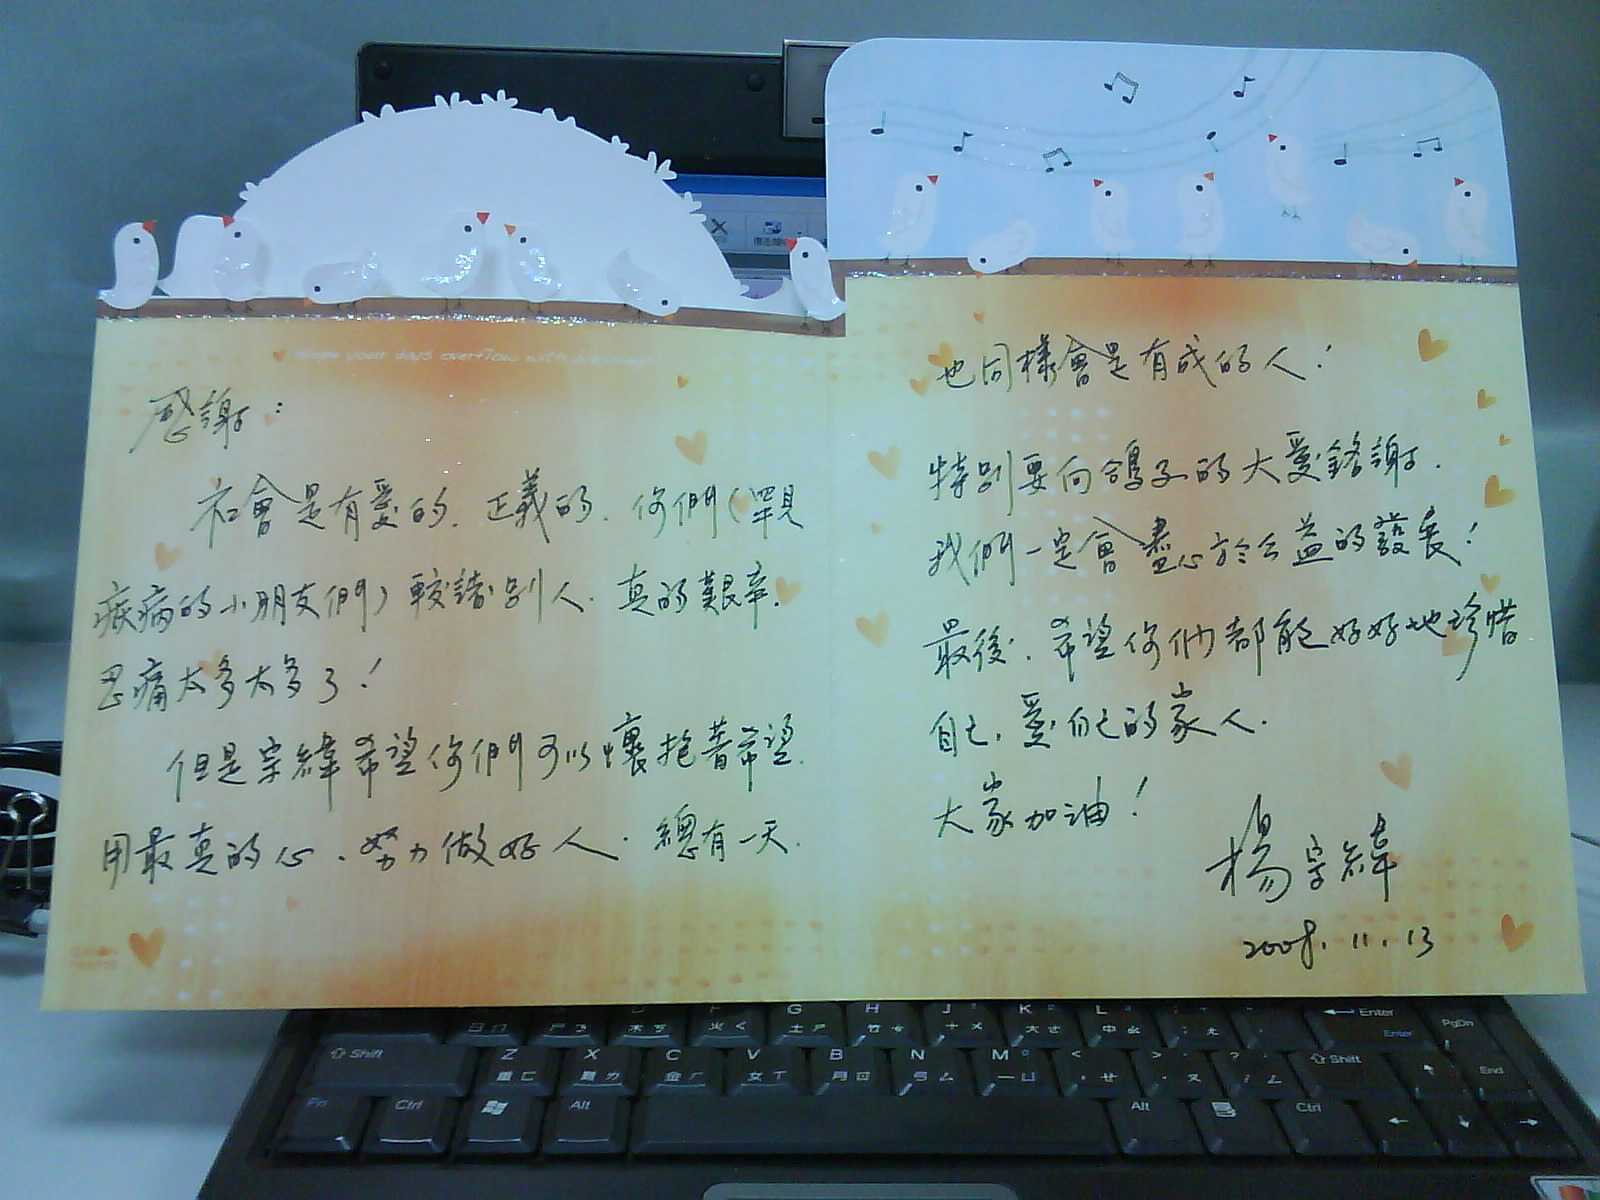 Hope your days overflow with
感謝：
社會是有愛的. 正義的. 你們(罕見
疾病的小朋友們) 較諸別人. 真的艱辛.
忍痛太多太多了!
但是宗緯希望你們可以懷抱著希望.
用最真的心. 努力做好人. 總有一天.
也同樣會是有成的人!
特別要向鴿子的大愛銘謝.
我們一定會盡心於公益的發展!
最後. 希望你們都能好好地珍惜
自己. 愛自己的家人.
大家加油!
楊宗緯
2008. 11. 13
G H J K L Enter PgDn
Shift Z X C V B N M Shift End
Fn Ctrl Alt Alt Ctrl